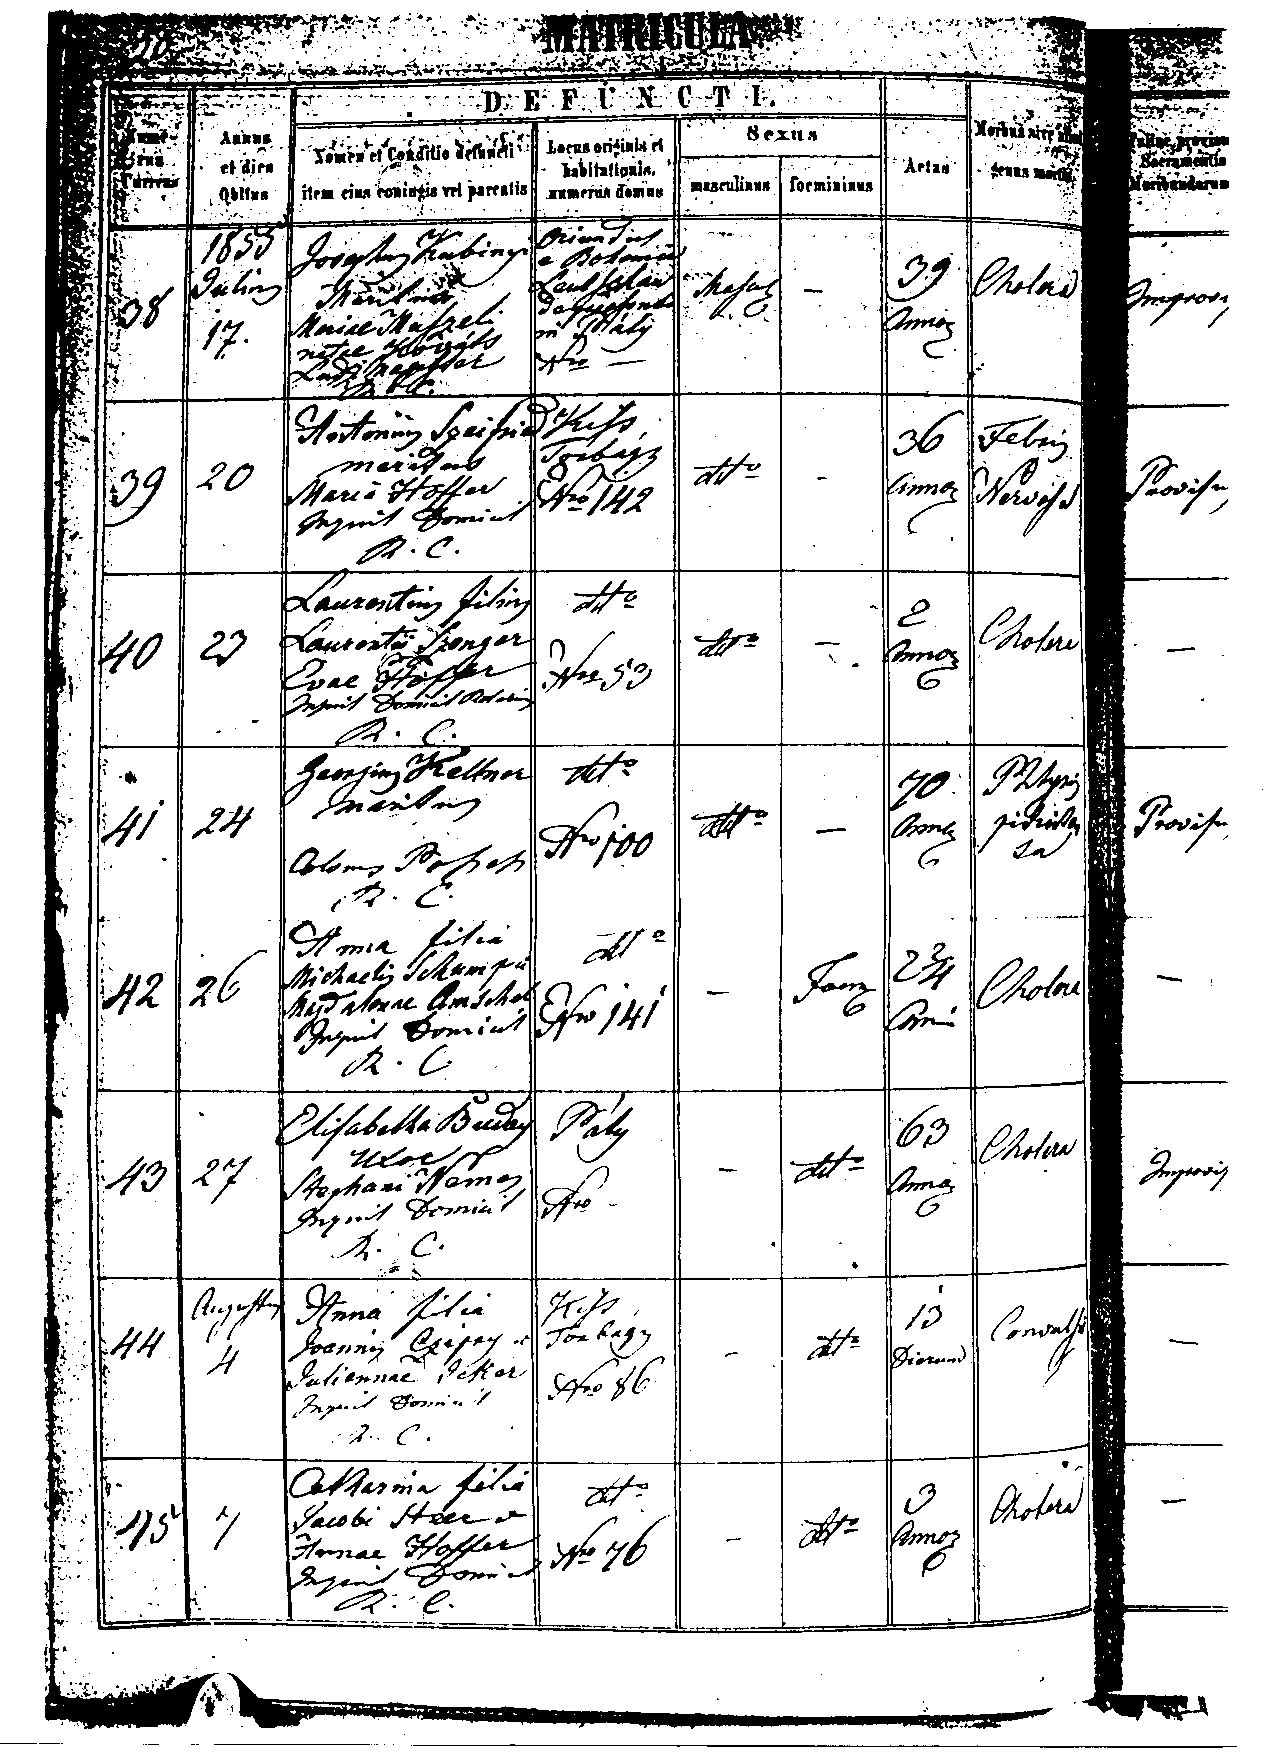 MATRICULA
DEFUNCTI.
Numerus Currens
Annus et dies Obitus
Nomen et Conditio defuncti item eius coniugis vel parentis
Locus originis et habitationis, numerus domus
Sexus
masculinus
foemininus
Aetas
Morbus sive
genus mortis
Sacramentis
Moribundorum
38
1855
Julius
17.
Josephus
Maritus
Mariae
R. C.
Oriundus
e Bohemia
in Pály
Nro —
Mascul
—
39
Annor
Cholera
Improvi
39
20
Antonius Szeifried
maritus
Maria Hoffer
Inquil Domicil
R. C.
Kiss
Torbágy
Nro 142
dtto
-
36
Annor
Febris
Nervosa
Provisu
40
23
Laurentius filius
Laurentii Szenger
Evae Hoffer
Inquil Domicil
R. C.
dtto
Nro 53
dtto
—
2
Annor
Cholera
—
41
24
Georgius Keltner
maritus
Colonus
R. C.
dtto
Nro 100
dtto
—
70
Annor
Provisu
42
26
Anna filia
Michaelis
Magdalenae Amschel
Inquil Domicil
R. C.
dtto
Nro 141
—
Foem
Anni
Cholera
—
43
27
Elisabetha Buday
uxor
Stephani Nemes
Inquil Domicil
R. C.
Pály
Nro -
—
dtto
63
Annor
Cholera
Improvis
44
Augustus
4
Anna filia
Joannis
Juliannae
Inquil Domicil
R. C.
Kiss
Torbágy
Nro 86
-
dtto
13
Dierum
Convuls
—
45
7
Catharina filia
Jacobi Steer &
Annae Hoffer
Inquil Domicil
R. C.
dtto
Nro 76
-
dtto
3
Annor
Cholera
—